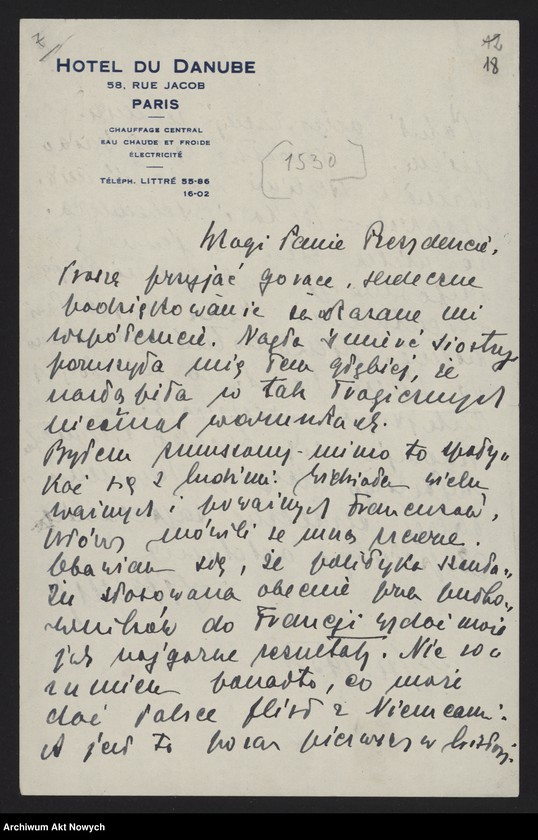 12
18
HOTEL DU DANUBE
58, RUE JACOB
PARIS
CHAUFFAGE CENTRAL
EAU CHAUDE ET FROIDE
ELECTRICITÉ
TÉLÉPH. LITTRÉ 55-86
16-02
1530
Drogi Panie Prezydencie,
Proszę przyjąć gorące, serdeczne
podziękowanie za okazane mi
współczucie. Nagła śmierć siostry
poruszyła mię tem głębiej, że
nastąpiła w tak tragicznych
niemal warunkach.
Byłem zmuszony mimo to spoty-
kać się z ludźmi. Widziałem wielu
ważnych i poważnych Francuzów,
którzy mówili ze mną szczerze.
Obawiam się, że polityka
stosowana obecnie przez
do Francji wydać może
jak najgorsze rezultaty. Nie ro-
zumiem ponadto, co może
dać Polsce flirt z Niemcami.
A jest to poraz pierwszy w historji
Archiwum Akt Nowych